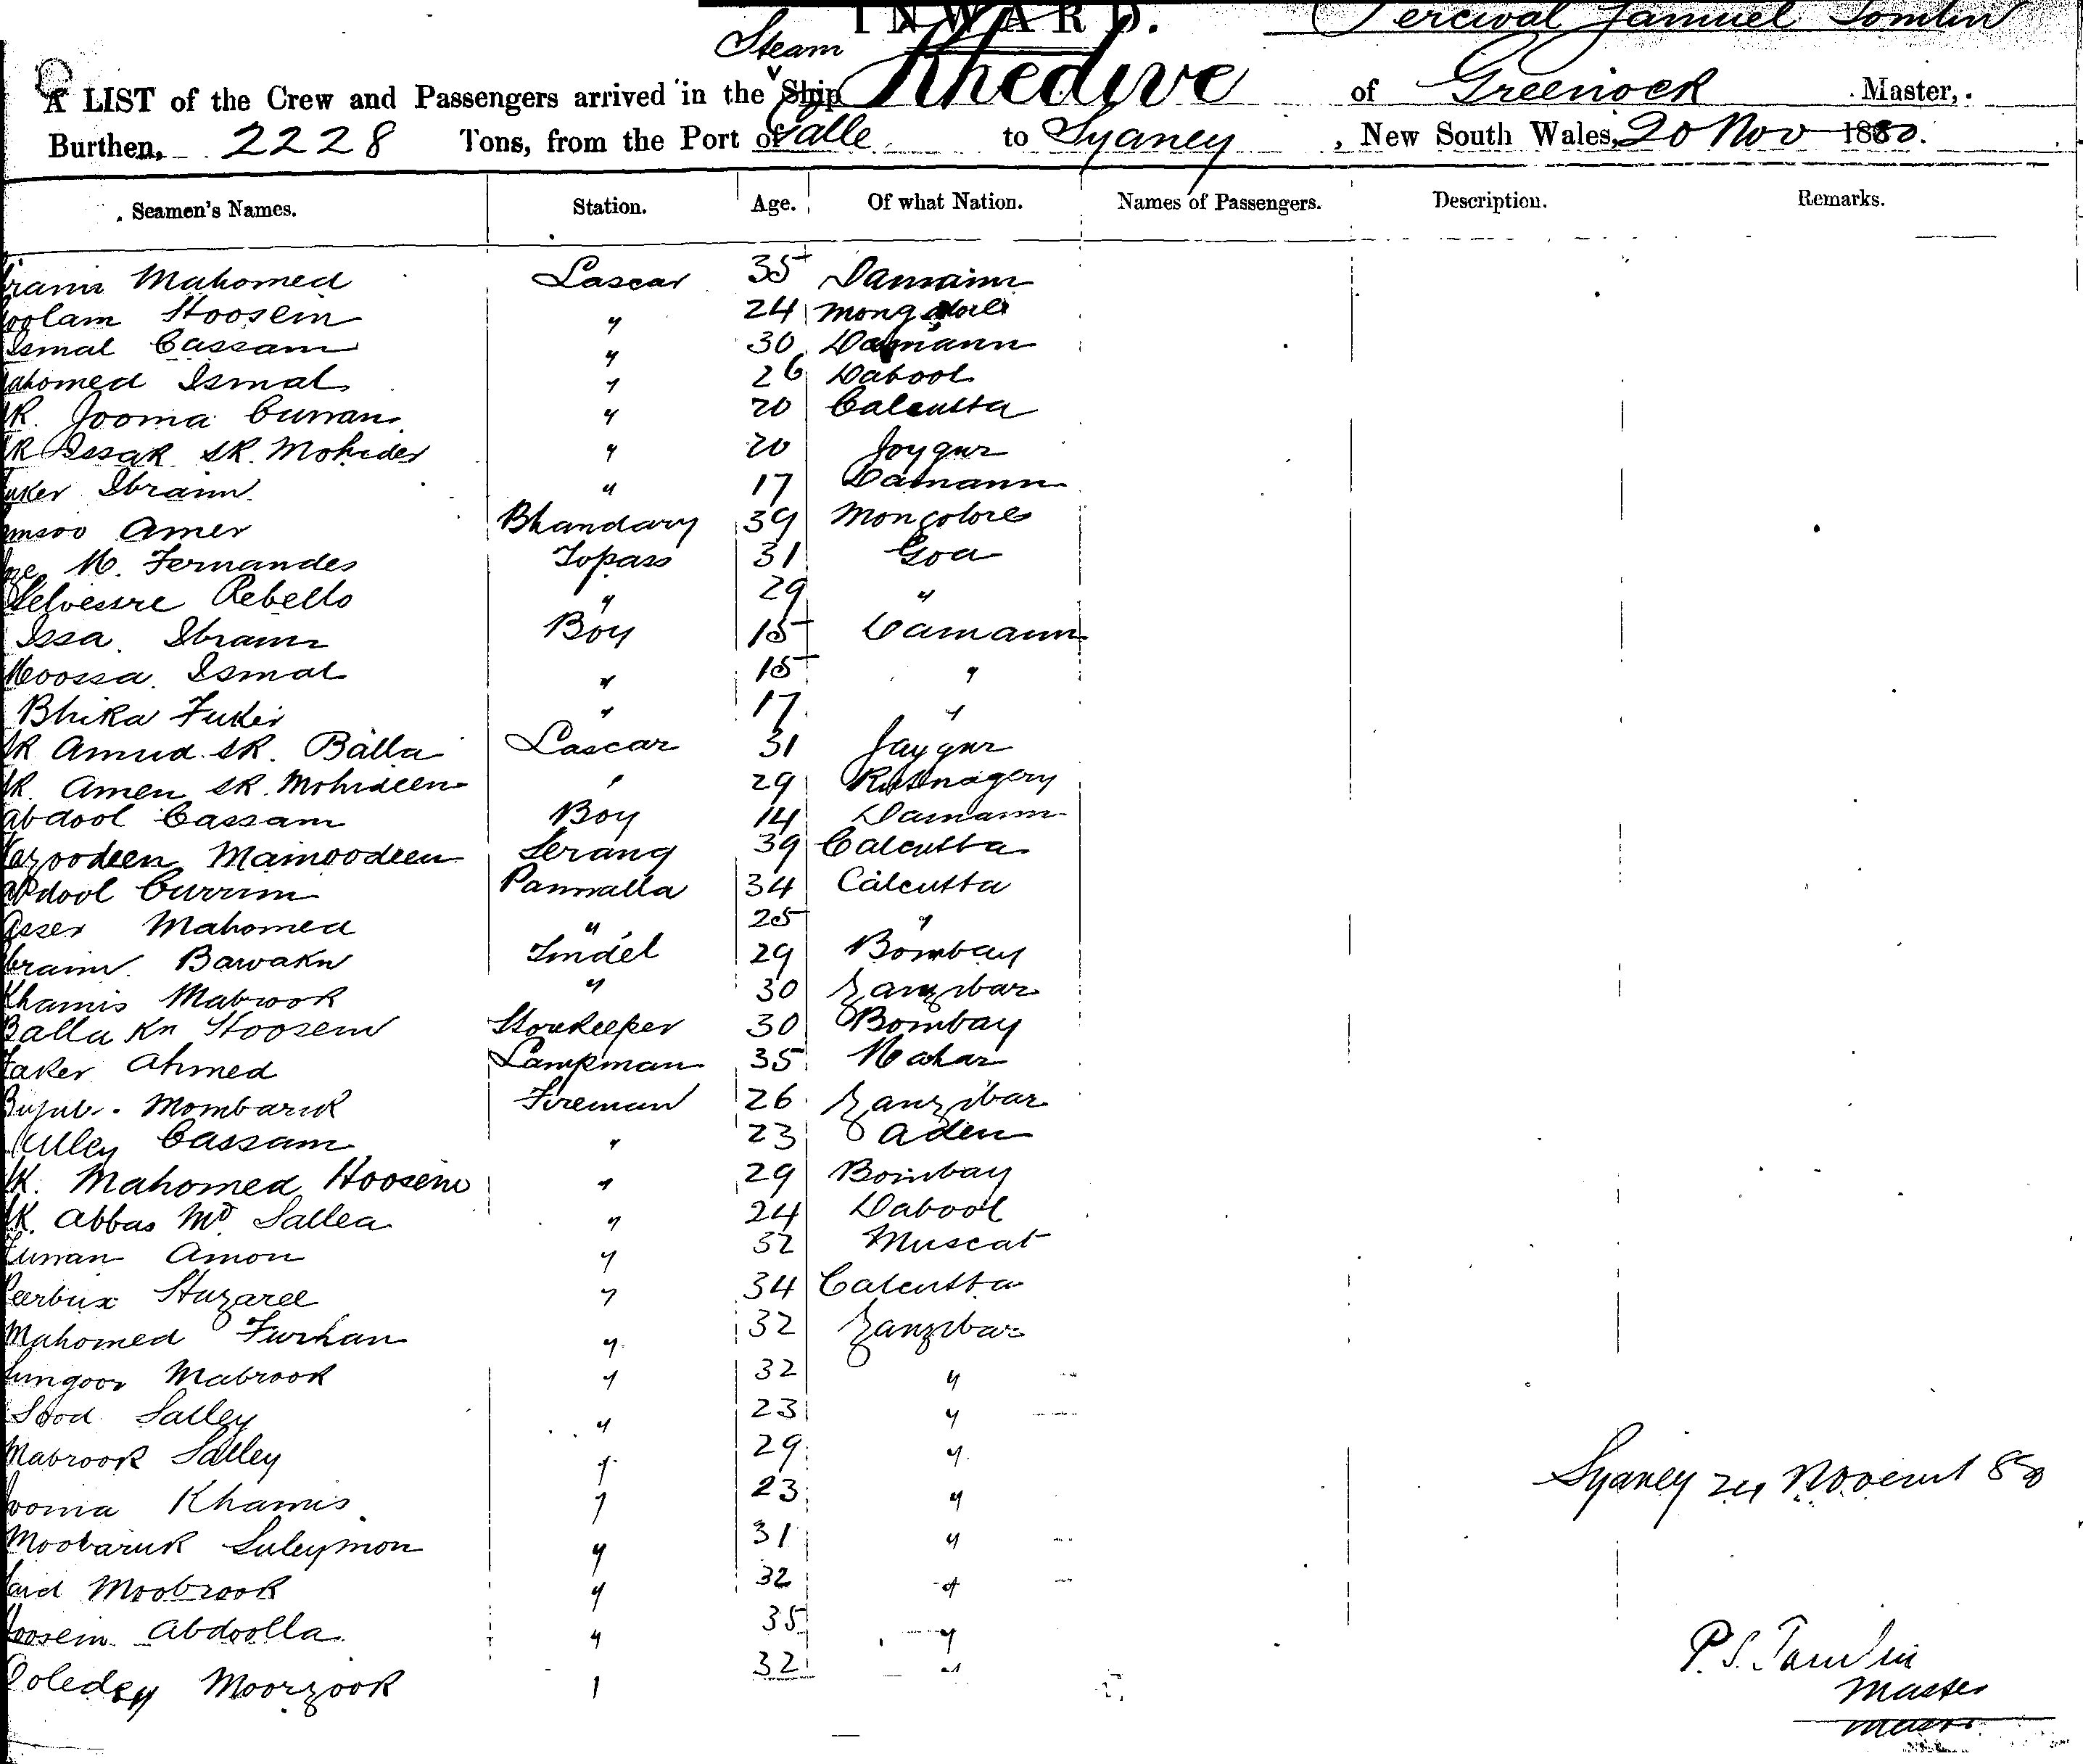 INWARD.
Percival Samuel Tomlin
Steam
A LIST of the Crew and Passengers arrived in the Ship Khedive of Greenock Master,
Burthen, 2228 Tons, from the Port of Galle to Sydney, New South Wales, 20 Nov 1880.
Seamen's Names. Station. Age. Of what Nation. Names of Passengers. Description. Remarks.
Mahomed Lascar 35 Damann
oolam Hoosein " 24
Ismal Cassam " 30 Damann
ahomed Ismal " 26 Dabool
Jooma Curran " 20 Calcutta
Issak SK. Mohider " 20 Joygur
Ibraim " 17 Damann
Amer Bhandary 39 Mongolore
M. Fernandes Topass 31 Goa
Selvestre Rebello " 29 "
Issa Ibraim Boy 15 Damann
Moossa Ismal " 15 "
Bhika Fukir " 17 "
SK Amud SK. Balla Lascar 31 Jaygur
SK. Amen SK. Mohideen " 29 Rutnagery
Abdool Cassam Boy 14 Damann
Mamoodeen Serang 39 Calcutta
Abdool Currim Pannalla 34 Calcutta
Mahomed " 25 "
braim Bawakn Tindel 29 Bombay
Khamis Mabrook " 30 Zanzibar
Balla Kn Hoosein Storekeeper 30 Bombay
Faker Ahmed Lampman 35
Mombaruk Fireman 26 Zanzibar
Cassam " 23 Aden
SK. Mahomed Hoosein " 29 Bombay
SK. Abbas Md Sallea " 24 Dabool
Amon " 32 Muscat
Peerbux Huzaree " 34 Calcutta
Mahomed Furhan " 32 Zanzibar
ungoor Mabrook " 32 "
Salley " 23 "
Mabrook Salley " 29 "
ooma Khamis " 23 "
Sydney 24 Novemt 80
Moobaruk Suleymon " 31 "
aid Moobrook " 32 "
oosein Abdoolla " 35 "
P. S. Tomlin
Moorzook " 32 "
Master